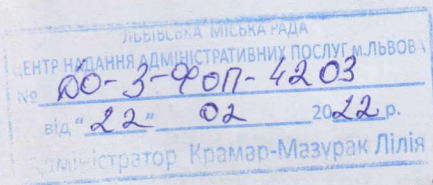 ЛЬВІВСЬКА МІСЬКА РАДА
ЦЕНТР НАДАННЯ АДМІНІСТРАТИВНИХ ПОСЛУГ м.ЛЬВОВА
№ ДО-3-ФОП-4203
від "22" 02 2022 р.
Адміністратор Крамар-Мазурак Лілія